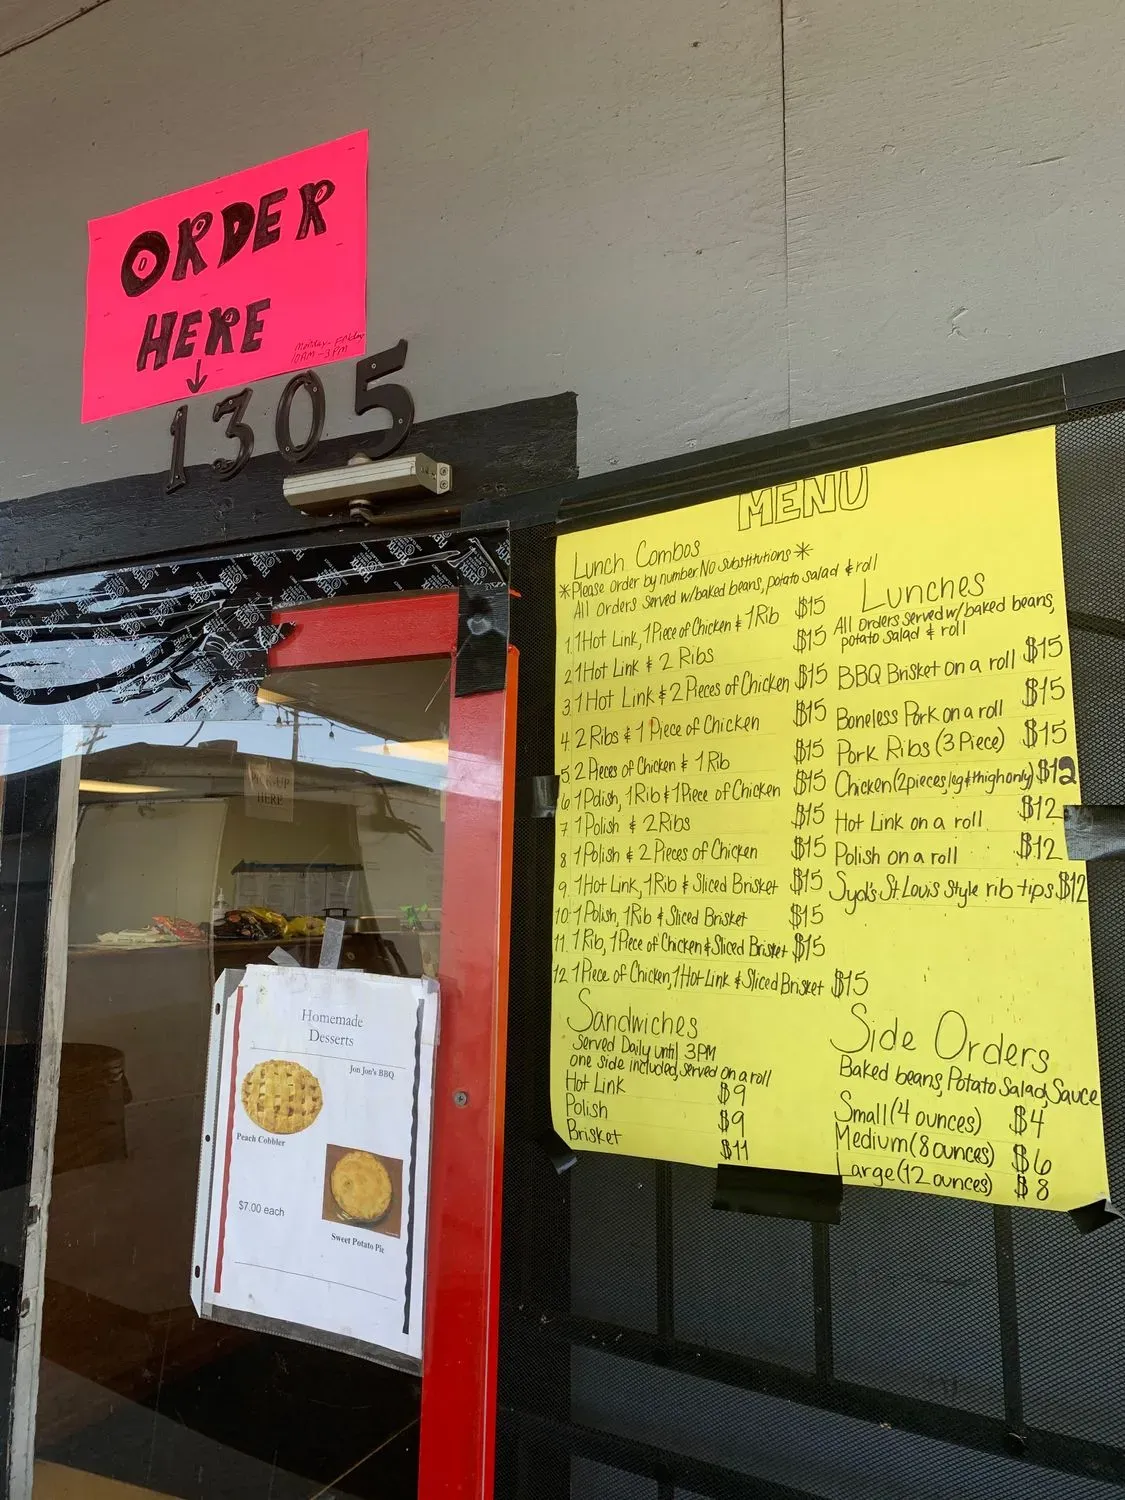 ORDER
HERE
Monday - Friday
10AM - 3PM
1305
PICK-UP
HERE
Homemade
Desserts
Jon Jon's BBQ
Peach Cobbler
$7.00 each
Sweet Potato Pie
MENU
Lunch Combos
*Please order by number. No Substitutions*
All orders served w/baked beans, potato salad & roll
1. 1 Hot Link, 1 Piece of Chicken & 1 Rib $15
2 1 Hot Link & 2 Ribs $15
3. 1 Hot Link & 2 Pieces of Chicken $15
4. 2 Ribs & 1 Piece of Chicken $15
5 2 Pieces of Chicken & 1 Rib $15
6 1 Polish, 1 Rib & 1 Piece of Chicken $15
7 1 Polish & 2 Ribs $15
8 1 Polish & 2 Pieces of Chicken $15
9. 1 Hot Link, 1 Rib & Sliced Brisket $15
10. 1 Polish, 1 Rib & Sliced Brisket $15
11. 1 Rib, 1 Piece of Chicken & Sliced Brisket $15
12. 1 Piece of Chicken, 1 Hot Link & Sliced Brisket $15
Lunches
All orders served w/baked beans,
potato salad & roll
BBQ Brisket on a roll $15
Boneless Pork on a roll $15
Pork Ribs (3 Piece) $15
Chicken (2 pieces, leg & thigh only) $12
Hot Link on a roll $12
Polish on a roll $12
Syd's St. Louis Style rib tips $12
Sandwiches
Served Daily until 3PM
one side included, served on a roll
Hot Link $9
Polish $9
Brisket $11
Side Orders
Baked beans, Potato Salad, Sauce
Small (4 ounces) $4
Medium (8 ounces) $6
Large (12 ounces) $8